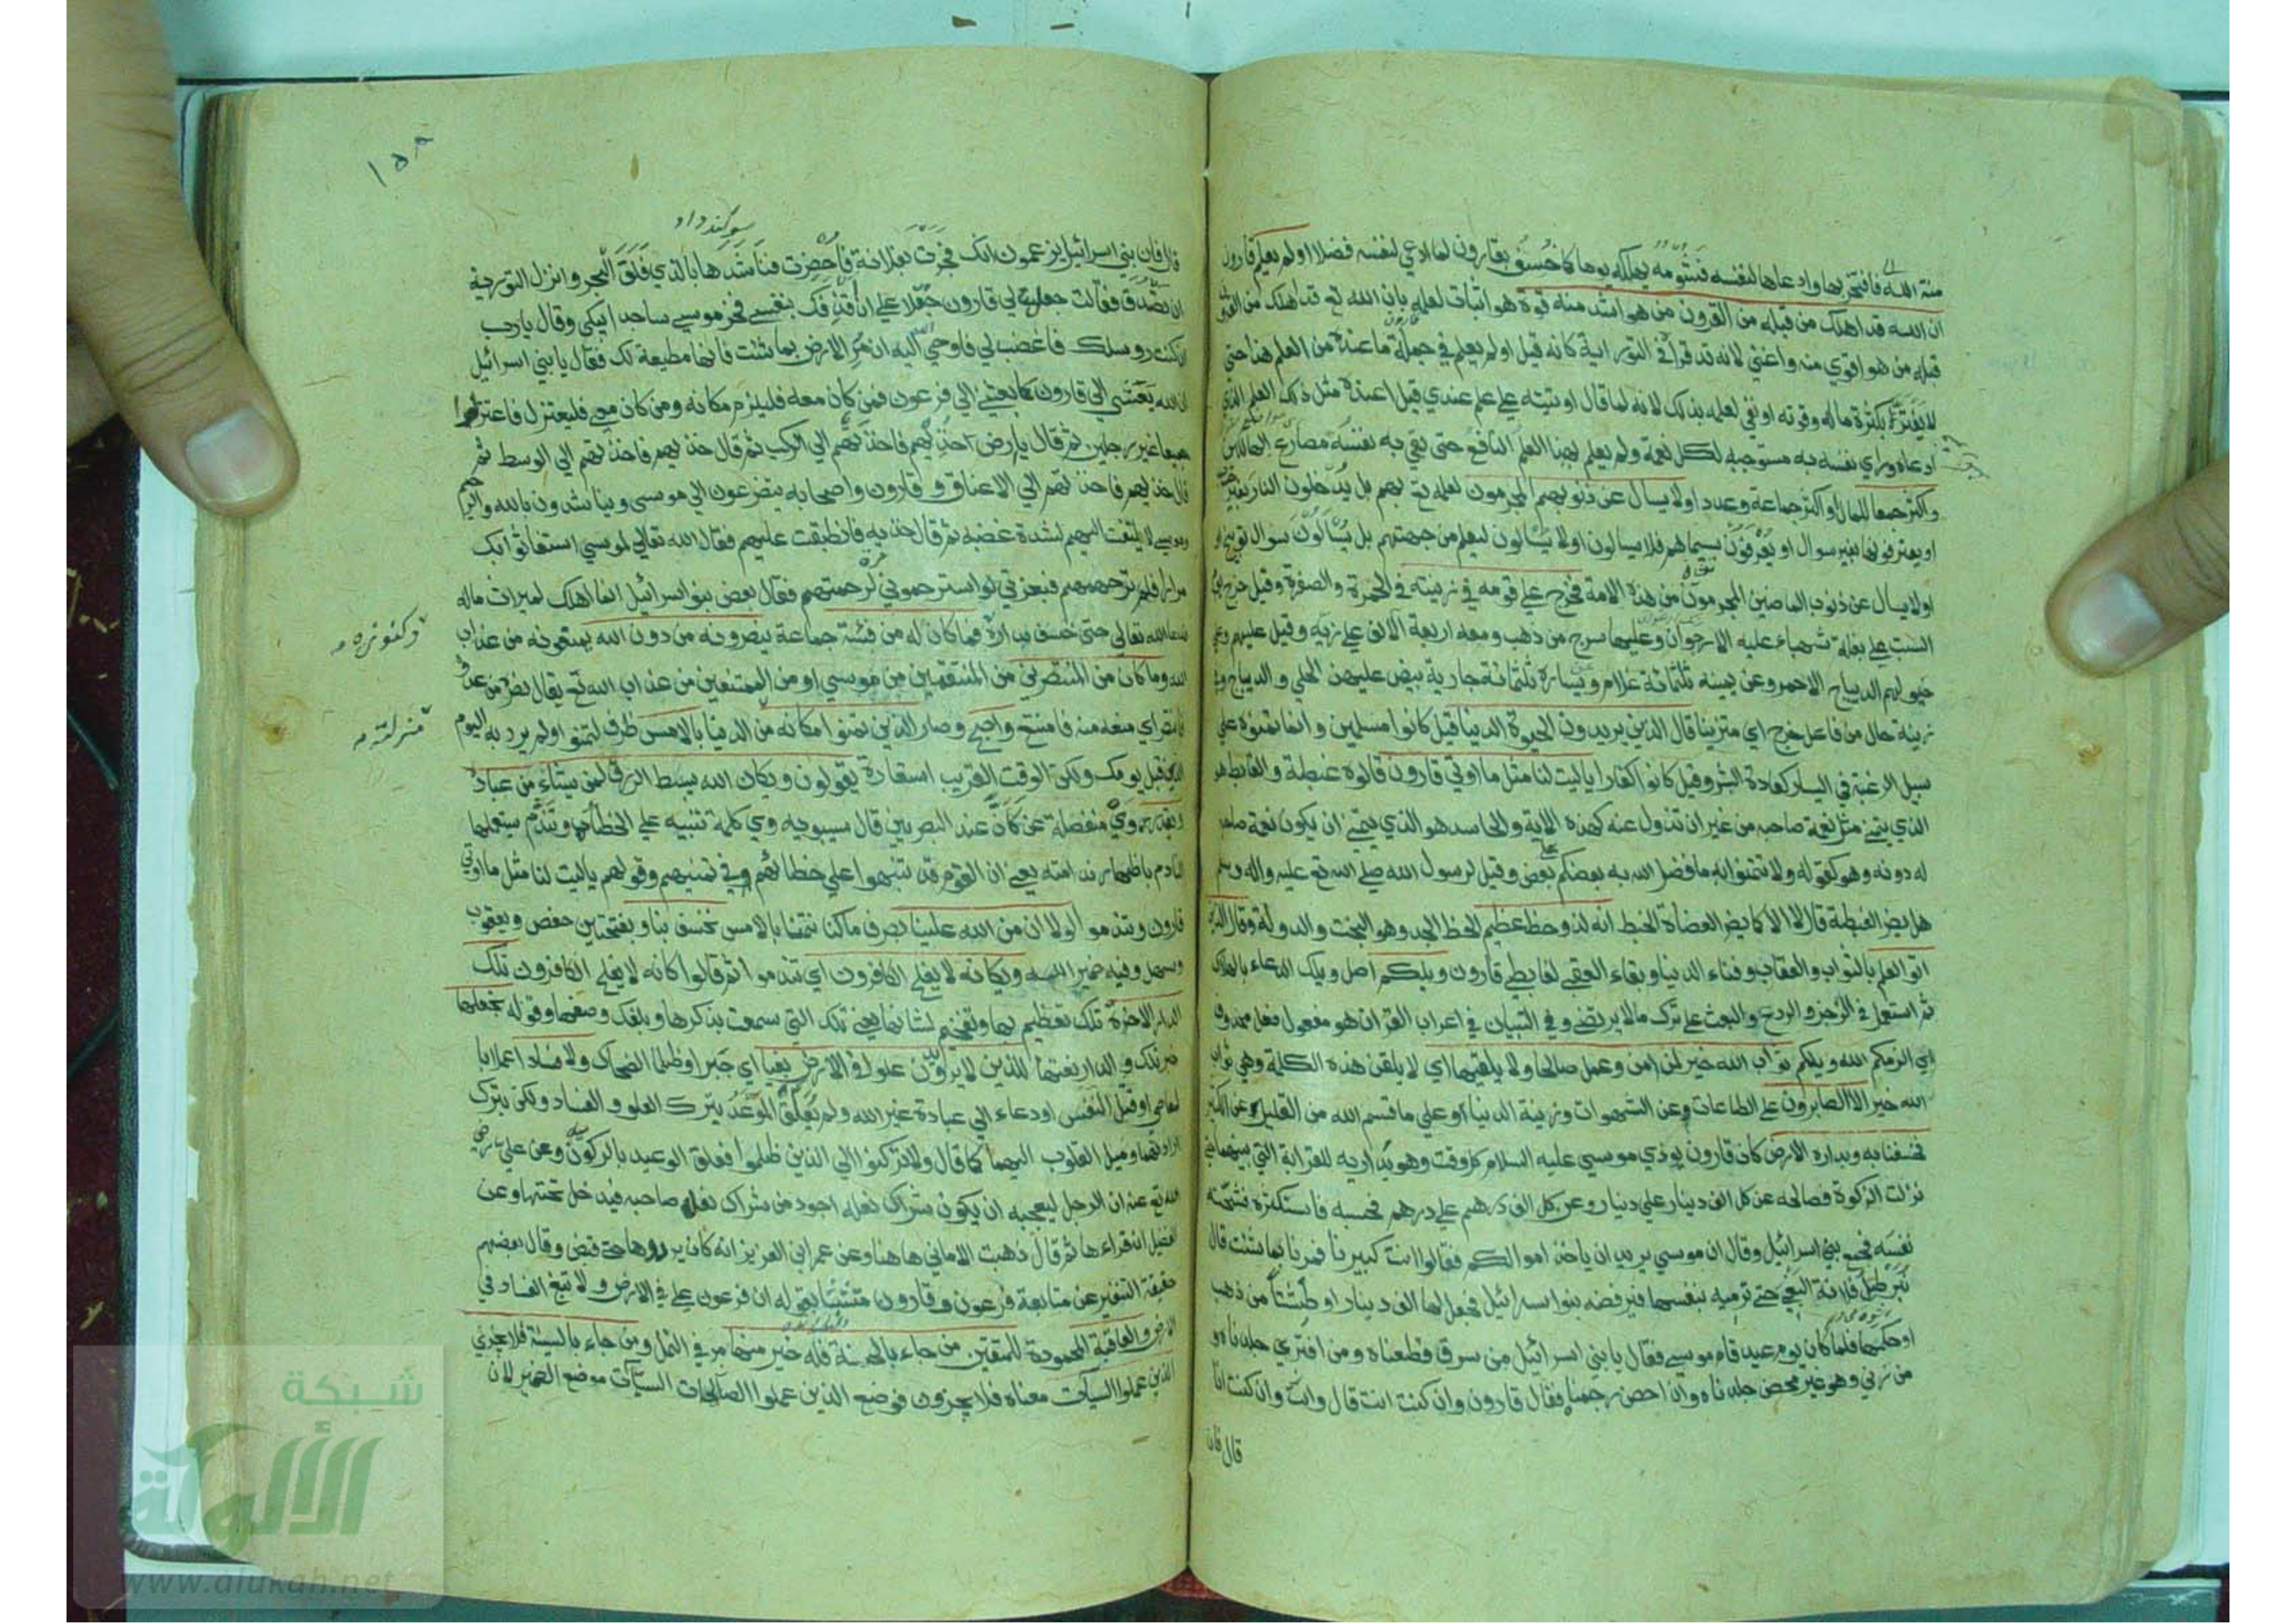 منة الله فافتخر بها وادعاها لنفسه فشومه يهلكه يوما كما خسف بقارون لما ادعي لنفسه فضلا اولم يعلم قارون
ان الله قد اهلك من قبله من القرون من هو اشد منه قوة هو اثبات لعلمه بان الله تع قد اهلك من القرون
قبله من هو اقوي منه واغني لانه قد قرأ في التورية كانه قيل اولم يعلم في جملة ما عنده من العلم هذا حتي
لا يغتر بكثرة ماله وقوته او نفي لعلمه بذلك لانه لما قال اوتيته علي علم عندي قيل اعنده مثل ذلك العلم الذي
ادعاه وراي نفسه به مستوجبه لكل نعمة ولم يعلم بهذا العلم النافع حتي يقي به نفسه مصارع الهالكين
واكثر جمعا للمال او اكثر جماعة وعددا ولا يسال عن ذنوبهم المجرمون لعلمه تع بهم بل يدخلون النار بغير
او يعترفون بها بغير سوال او يعرفون بسيماهم فلا يسالون اولا يسالون ليعلم من جهتهم بل يسألون سوال توبيخ
اولا يسال عن ذنوب الماضين المجرمون من هذه الامة فخرج علي قومه في زينته في الحمرة والصفرة وقيل خرج يوم
السبت علي بغلة شهباء عليه الارجوان وعليها سرج من ذهب ومعه اربعة الاف علي زيه وقيل عليهم وعلي
خيولهم الديباج الاحمر وعن يمينه ثلثمائة غلام ويساره ثلثمائة جارية بيض عليهن الحلي والديباج وفي
زينته حال من فاعل خرج اي متزينا قال الذين يريدون الحيوة الدنيا قيل كانوا مسلمين وانما تمنوه علي
سبيل الرغبة في اليسار كعادة البشر وقيل كانوا كفارا ياليت لنا مثل ما اوتي قارون قالوه غبطة والغابط هو
الذي يتمني مثل نعمة صاحبه من غير ان تزول عنه كهذه الاية والحاسد هو الذي يتمني ان يكون نعمة صاحبه
له دونه وهو كقوله ولا تتمنوا ما فضل الله به بعضكم علي بعض وقيل لرسول الله صلي الله تع عليه واله وسلم
هل يضر الغبطة قال لا الا كما يضر العضاة الخبط انه لذو حظ عظيم الحظ الجد وهو البخت والدولة وقال الذين
اتوا العلم بالثواب والعقاب وفناء الدنيا وبقاء العقبي لغابطي قارون ويلكم اصل ويلك الدعاء بالهلاك
ثم استعمل في الزجر والردع والبعث علي ترك ما لا يرتضي وفي التبيان في اعراب القران هو مفعول فعل محذوف
اي الزمكم الله ويلكم ثواب الله خير لمن امن وعمل صالحا ولا يلقيها اي لا يلقن هذه الكلمة وهي ثواب
الله خير الا الصابرون علي الطاعات وعن الشهوات وزينة الدنيا او علي ما قسم الله من القليل عن الكثير
فخسفنا به وبداره الارض كان قارون يوذي موسي عليه السلام كل وقت وهو يداريه للقرابة التي بينهما حتي
نزلت الزكوة فصالحه عن كل الف دينار علي دينار وعن كل الف درهم علي درهم فحسبه فاستكثره فشحت به
نفسه فجمع بني اسرائيل وقال ان موسي يريد ان ياخذ اموالكم فقالوا انت كبيرنا فمرنا بما شئت قال
نبرطل فلانة البغي حتي ترميه بنفسها فيرفضه بنوا اسرائيل فجعل لها الف دينار او طشتا من ذهب
او حكمها فلما كان يوم عيد قام موسي فقال يا بني اسرائيل من سرق قطعناه ومن افتري جلدناه و
من زني وهو غير محصن جلدناه وان احصن رجمناه فقال قارون وان كنت انت قال وانت وان كنت انا
قال فان
١٥٨
سوكند داد
قال فان بني اسرائيل يزعمون انك فجرت بفلانة فاحضرت فناشدها بالذي فلق البحر وانزل التورية
ان تصدق فقالت جعل لي قارون جعلا علي ان اقذفك بنفسي فخر موسي ساجدا يبكي وقال يا رب
ان كنت رسولك فاغضب لي فاوحي اليه ان مر الارض بما شئت فانها مطيعة لك فقال يا بني اسرائيل
ان الله بعثني الي قارون كما بعثني الي فرعون فمن كان معه فليلزم مكانه ومن كان معي فليعتزل فاعتزلوا
جميعا غير رجلين ثم قال يا ارض خذيهم فاخذتهم الي الركب ثم قال خذيهم فاخذتهم الي الوسط ثم
قال خذيهم فاخذتهم الي الاعناق وقارون واصحابه يتضرعون الي موسي ويناشدونه بالله والرحم
وموسي لا يلتفت اليهم لشدة غضبه ثم قال خذيهم فانطبقت عليهم فقال الله تعالي لموسي استغاثوا بك
مرارا فلم ترحمهم فبعزتي لو استرحموني مرة لرحمتهم فقال بعض بنوا اسرائيل انما اهلك لميراث ماله
وكنوزه
فدعا الله تعالي حتي خسف بداره فما كان له من فئة جماعة ينصرونه من دون الله يمنعونه من عذاب
الله وما كان من المنتصرين من المنتقمين من موسي او من الممتنعين من عذاب الله تع يقال نصره من عدوه
فانتصر اي منعه منه فامتنع واصبح وصار الذين تمنوا مكانه من الدنيا بالامس ظرف لتمنوا ولم يرد به اليوم
منزلته
الذي قبل يومك ولكن الوقت القريب استعارة يقولون ويكان الله يبسط الرزق لمن يشاء من عباده
ويقدر وي منفصلة عن كان عند البصريين قال سيبويه وي كلمة تنبيه علي الخطأ وتندم يستعملها
النادم باظهار ندامته يعني ان القوم قد تنبهوا علي خطائهم في تمنيهم وقولهم ياليت لنا مثل ما اوتي
قارون وتندموا لولا ان من الله علينا بصرف ما كنا نتمناه بالامس لخسف بنا وبفتحتين حفص ويعقوب
وسهل وفيه ضمير الله ويكانه لا يفلح الكافرون اي تندموا ثم قالوا كانه لا يفلح الكافرون تلك
الدار الاخرة تلك تعظيم لها وتفخيم لشانها يعني تلك التي سمعت بذكرها وبلغك وصفها وقوله نجعلها
خبر تلك والدار نعتها للذين لا يريدون علوا في الارض بغيا اي جبرا وظلما الضحاك ولا فسادا عملا با
لمعاصي او قتل النفس او دعاء الي عبادة غير الله ولم يعلق الموعد بترك العلو والفساد ولكن بترك
ارادتهما وميل القلوب اليهما كما قال ولا تركنوا الي الذين ظلموا فعلق الوعيد بالركون وعن علي رضي
الله تع عنه ان الرجل ليعجبه ان يكون شراك نعله اجود من شراك نعله صاحبه فيدخل تحتها وعن
الفضيل انه قراءها ثم قال ذهبت الاماني هاهنا وعن عمر بن العزيز انه كان يرددها حتي قبض وقال بعضهم
حقيقة التنفير عن متابعة فرعون وقارون متشبثا بقوله ان فرعون علي في الارض ولا تبغ الفساد في
الارض والعاقبة المحمودة للمتقين من جاء بالحسنة فله خير منها مر في النمل ومن جاء بالسيئة فلا يجزي
الذين عملوا السيئات معناه فلا يجزون فوضع الذين عملوا السيئات موضع الضمير لان
شبكة
الألوكة
www.alukah.net